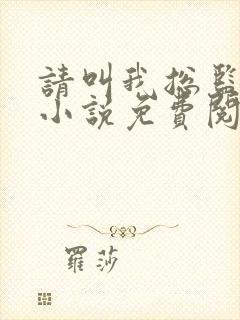 請叫我总監
小說免費閱
羅莎